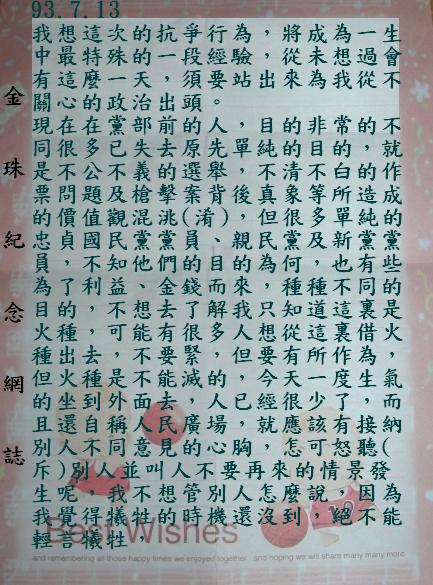 93.7.13
我想這次的抗爭行為，將成為一生
中最特殊的一段經驗，從未想過會
有這麼的一天，須要站出來為我從不
關心的政治出頭。
現在在黨部前的人，目的非常的不
同很多已失去原先單純的目的，就
是不公不義的選舉，不清不白的作
票問題及槍擊案背後真象等所造成
的價值觀混洮(淆)，但很多單純的
忠貞國民黨黨員、親民黨及新黨的黨
員，不知他們的目的為何，也有些
為了利益、金錢而來，種種不同的
目的，不想去了解我只知道這裏是
火種，可能有很多人想從這裏借火，
種出去，不要緊，但要有所作為，
但火種是不能滅的，今天一度生氣
的坐到外面去，人已經很少了，而
且還自稱人民廣場，就應該有接納
別人不同意見的心胸，怎可怒聽(
斥)別人並叫人不要再來的情景發
生呢，我不想管別人怎麼說，因為
我覺得犧牲的時機還沒到，絕不能
輕言犧牲
金珠紀念網誌
Best Wishes
and remembering all those happy times we enjoyed together and hoping we will share many many more